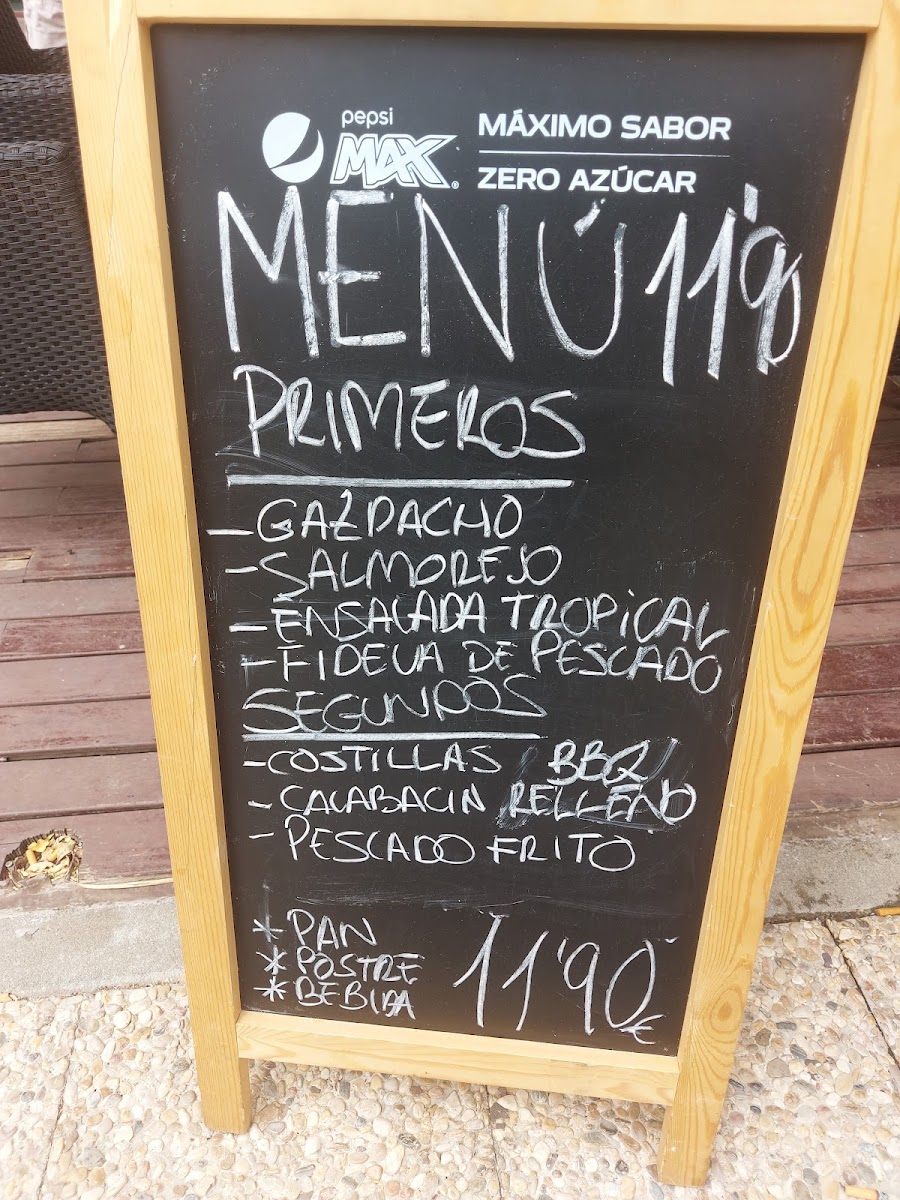 pepsi
MAX
MÁXIMO SABOR
ZERO AZÚCAR
MENÚ 11'90
PRIMEROS
- GAZPACHO
- SALMOREJO
- ENSALADA TROPICAL
- FIDEUA DE PESCADO
SEGUNDOS
- COSTILLAS BBQ
- CALABACIN RELLENO
- PESCADO FRITO
* PAN
* POSTRE
* BEBIDA
11'90€